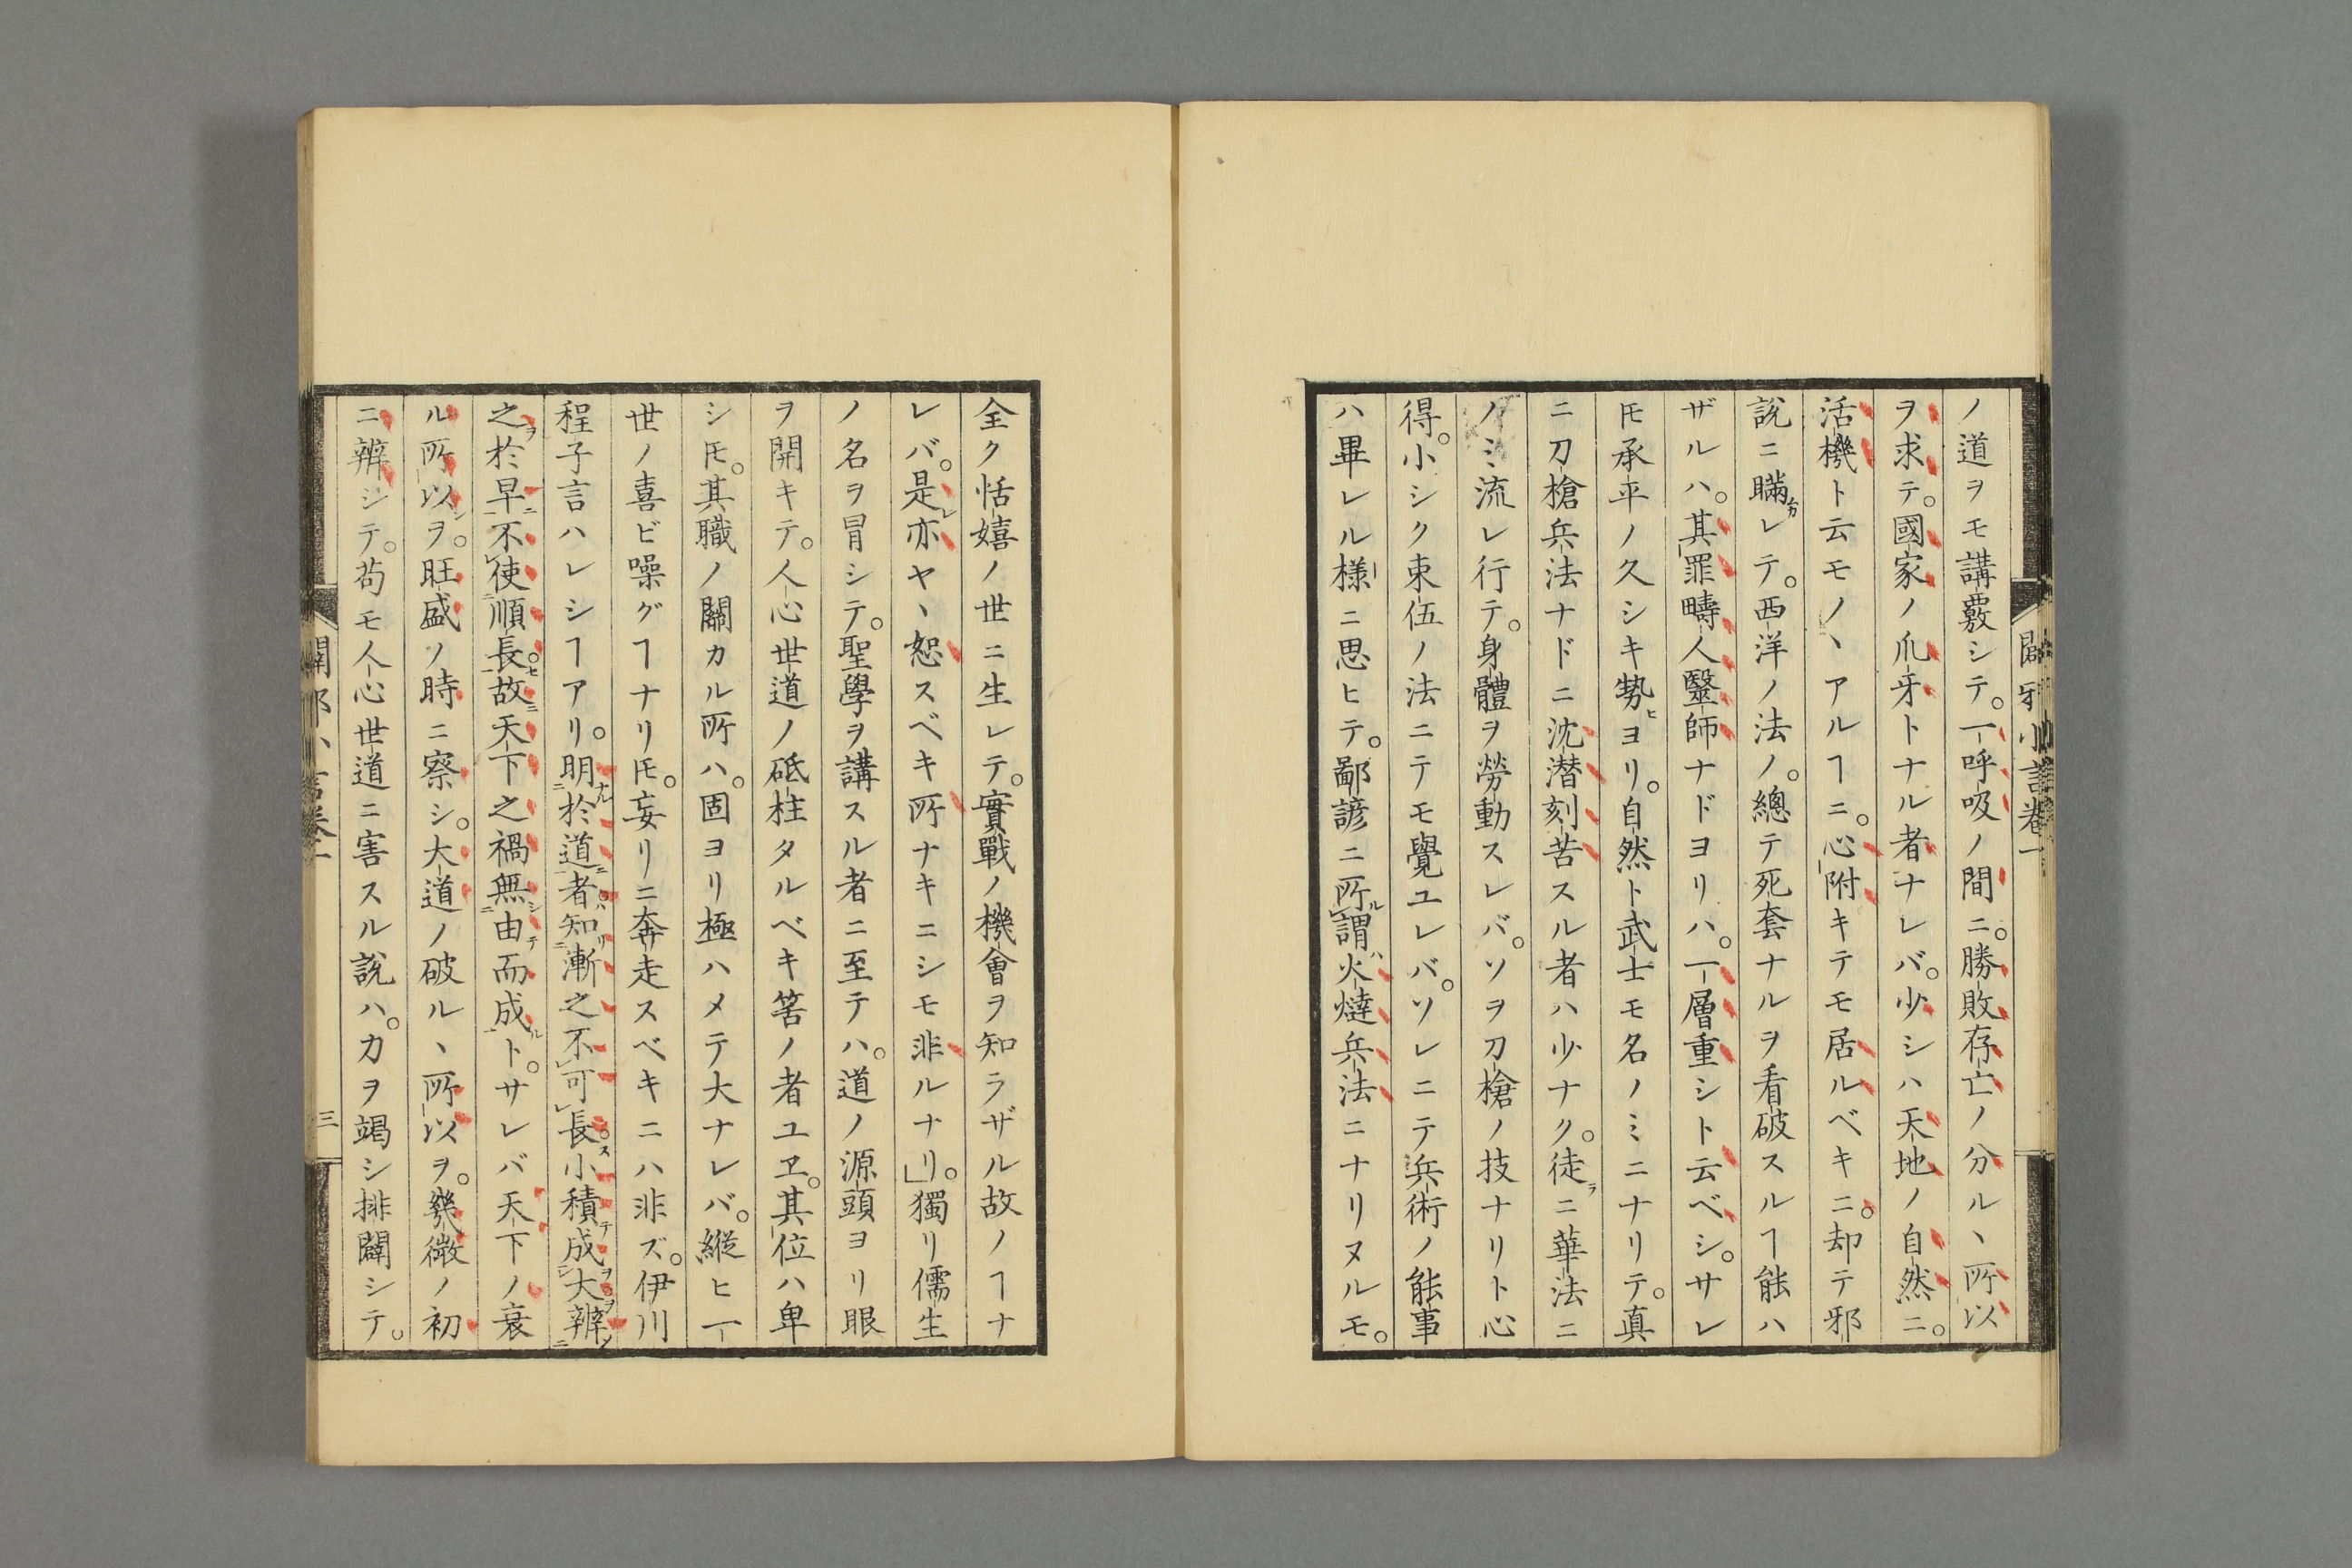 ノ道ヲモ講覈シテ。一呼吸ノ間ニ。勝敗存亡ノ分ル丶所以
ヲ求テ。國家ノ爪牙トナル者ナレバ。少シハ天地ノ自然ニ。
活機ト云モノ丶アルヿニ。心附キテモ居ルベキニ。却テ邪
說ニ瞞レテ。西洋ノ法ノ。總テ死套ナルヲ看破スルヿ能ハ
ザルハ。其罪疇人毉師ナドヨリハ。一層重シト云ベシ。サレ
𪜈承平ノ久シキ勢ヒヨリ。自然ト武士モ名ノミニナリテ。真
ニ刀槍兵法ナドニ沈潜刻苦スル者ハ少ナク。徒ラニ華法ニ
ノミ流レ行テ。身體ヲ勞動スレバ。ソヲ刀槍ノ技ナリト心
得。小シク束伍ノ法ニテモ覺ユレバ。ソレニテ兵術ノ能事
ハ畢レル樣ニ思ヒテ。鄙諺ニ所謂ル火燵兵法ニナリヌルモ。
闢邪小言卷一
全ク恬嬉ノ世ニ生レテ。實戰ノ機會ヲ知ラザル故ノヿナ
レバ。是レ亦ヤ丶恕スベキ所ナキニシモ非ルナリ」。獨リ儒生
ノ名ヲ冒シテ。聖學ヲ講スル者ニ至テハ。道ノ源頭ヨリ眼
ヲ開キテ。人心世道ノ砥柱タルベキ筈ノ者ユヱ。其位ハ卑
シ𪜈。其職ノ關カル所ハ。固ヨリ極ハメテ大ナレバ。縱ヒ一
世ノ喜ビ噪グヿナリ𪜈。妄リニ奔走スベキニハ非ズ。伊川
程子言ハレシヿアリ。明於道者知漸之不可長小積成大辨
之於早不使順長故天下之禍無由而成ト。サレバ天下ノ衰
ル所以ヲ。旺盛ノ時ニ察シ。大道ノ破ル丶所以ヲ。幾微ノ初
ニ辨シテ。苟モ人心世道ニ害スル說ハ。力ヲ竭シ排闢シテ。
三